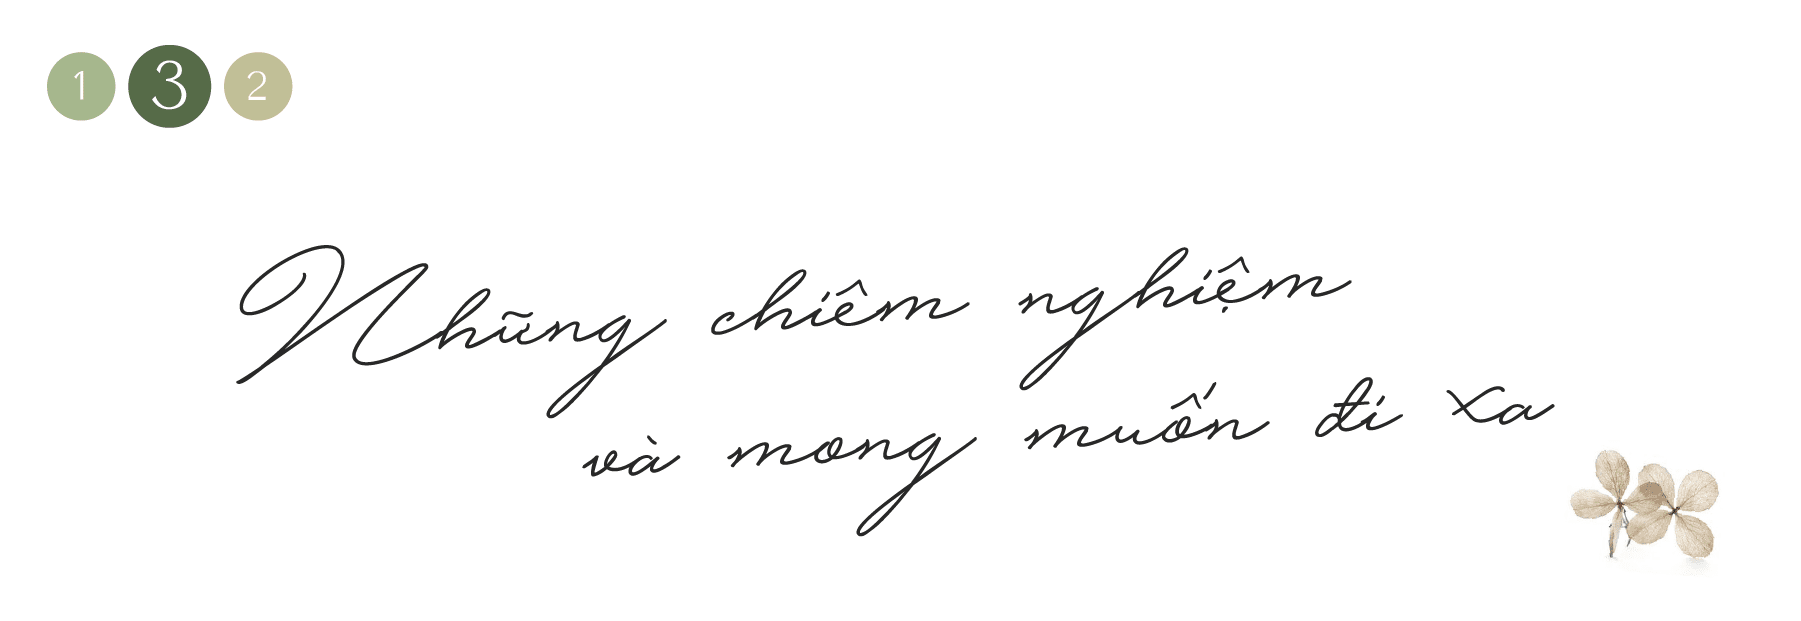 1 3 2
Những chiêm nghiệm
và mong muốn đi xa